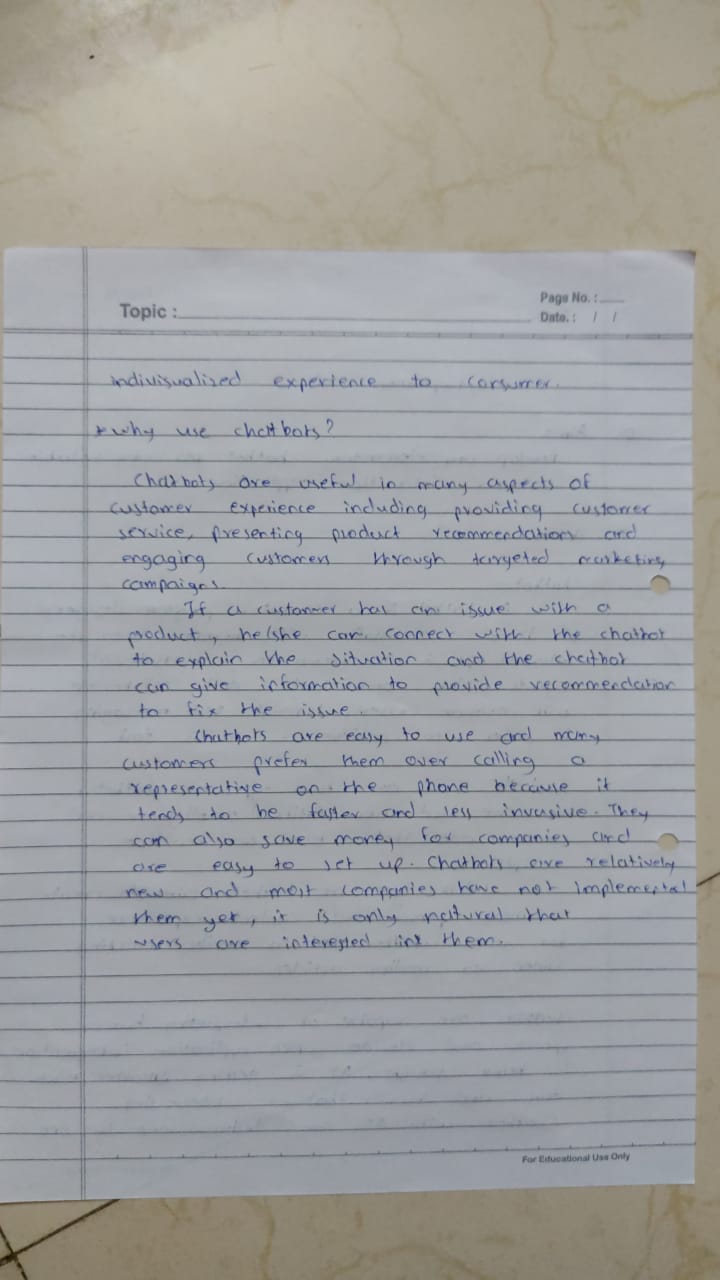 Topic :
Page No. :
Date. : / /
indivisualized experience to consumer.
* why use chatbots?
Chatbots are useful in many aspects of
customer experience including providing customer
service, presenting product recommendations and
engaging customers through targeted marketing
campaigns.
If a customer has an issue with a
product, he/she can connect with the chatbot
to explain the situation and the chatbot
can give information to provide recommendation
to fix the issue.
Chatbots are easy to use and many
customers prefer them over calling a
representative on the phone because it
tends to be faster and less invasive. They
can also save money for companies and
are easy to set up. Chatbots are relatively
new and most companies have not implemented
them yet, it is only natural that
users are interested in them.
For Educational Use Only